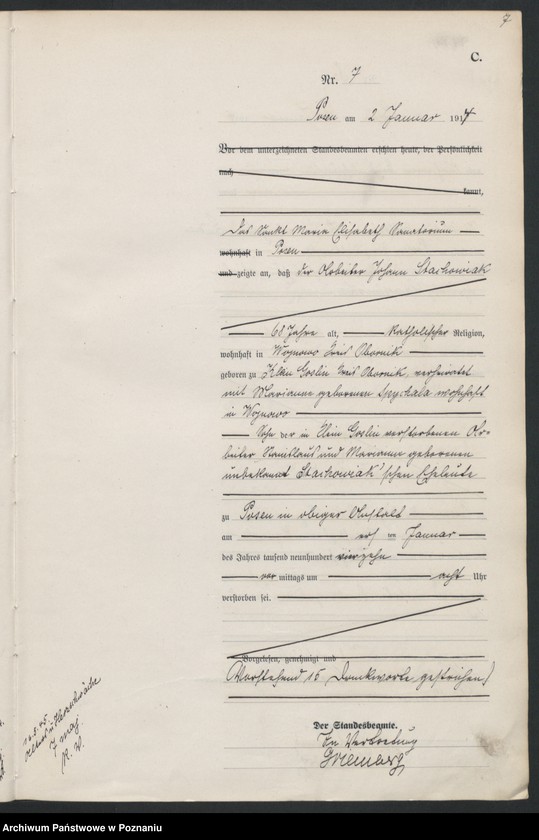 7
C.
Nr. 7
Posen am 2 Januar 1914
Vor dem unterzeichneten Standesbeamten erschien heute, der Persönlichkeit
nach
kannt,
Das Sankt Maria Elisabeth Sanatorium
wohnhaft in Posen
und zeigte an, daß der Arbeiter Johann Stachowiak
68 Jahre alt, katholischer Religion,
wohnhaft in Wognowo Kreis Obornik
geboren zu Klein Goslin Kreis Obornik, verheiratet
mit Marianne geborenen Spychala wohnhaft
in Wognowo
Sohn der in Klein Goslin verstorbenen Ar-
beiter Stanislaus und Marianne geborenen
unbekannt Stachowiak'schen Eheleute
zu Posen in obiger Anstalt
am ersten Januar
des Jahres tausend neunhundert vierzehn
vor mittags um acht Uhr
verstorben sei.
Vorgelesen, genehmigt und
(Vorstehend 15 Druckworte gestrichen)
Der Standesbeamte.
In Vertretung
Archiwum Państwowe w Poznaniu